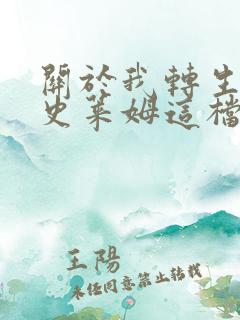 關於我轉生
史萊姆這檔
王陽
未經同意禁止轉載